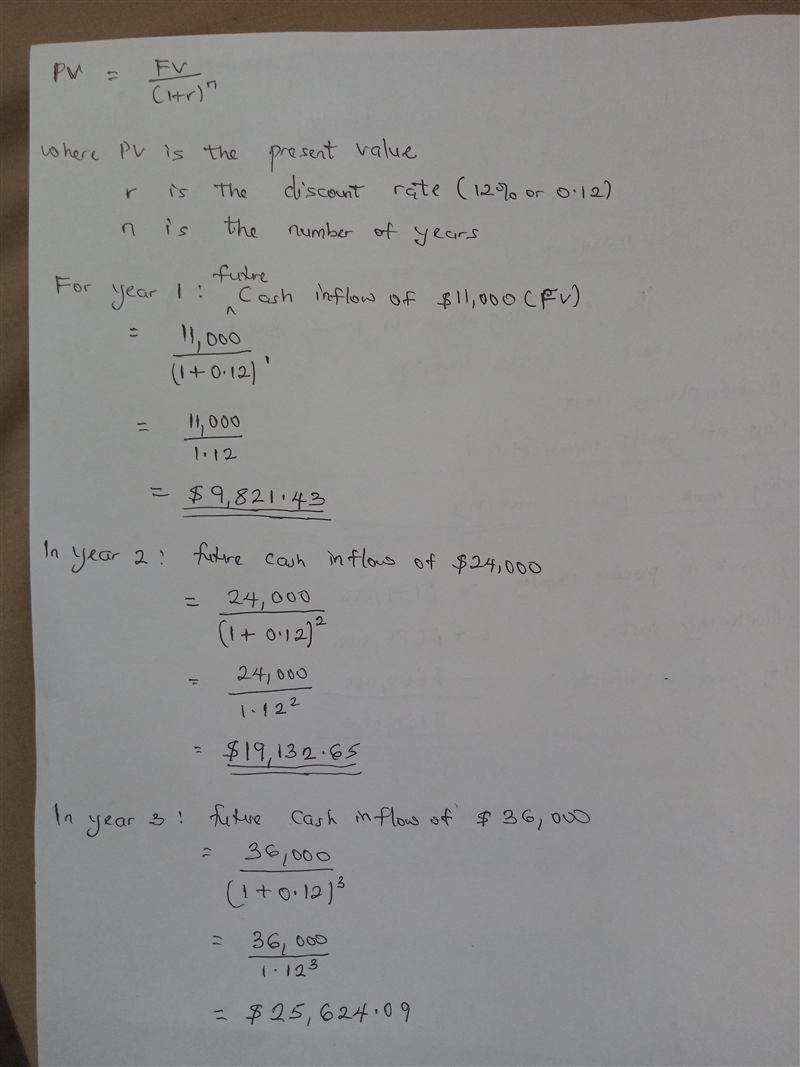 PV = FV / (1+r)^n
where PV is the present value
r is the discount rate (12% or 0.12)
n is the number of years
For year 1 : future Cash inflow of $11,000 (FV)
= 11,000 / (1 + 0.12)^1
= 11,000 / 1.12
= $9,821.43
In year 2 : future cash inflow of $24,000
= 24,000 / (1 + 0.12)^2
= 24,000 / 1.12^2
= $19,132.65
In year 3 : future cash inflow of $36,000
= 36,000 / (1 + 0.12)^3
= 36,000 / 1.12^3
= $25,624.09